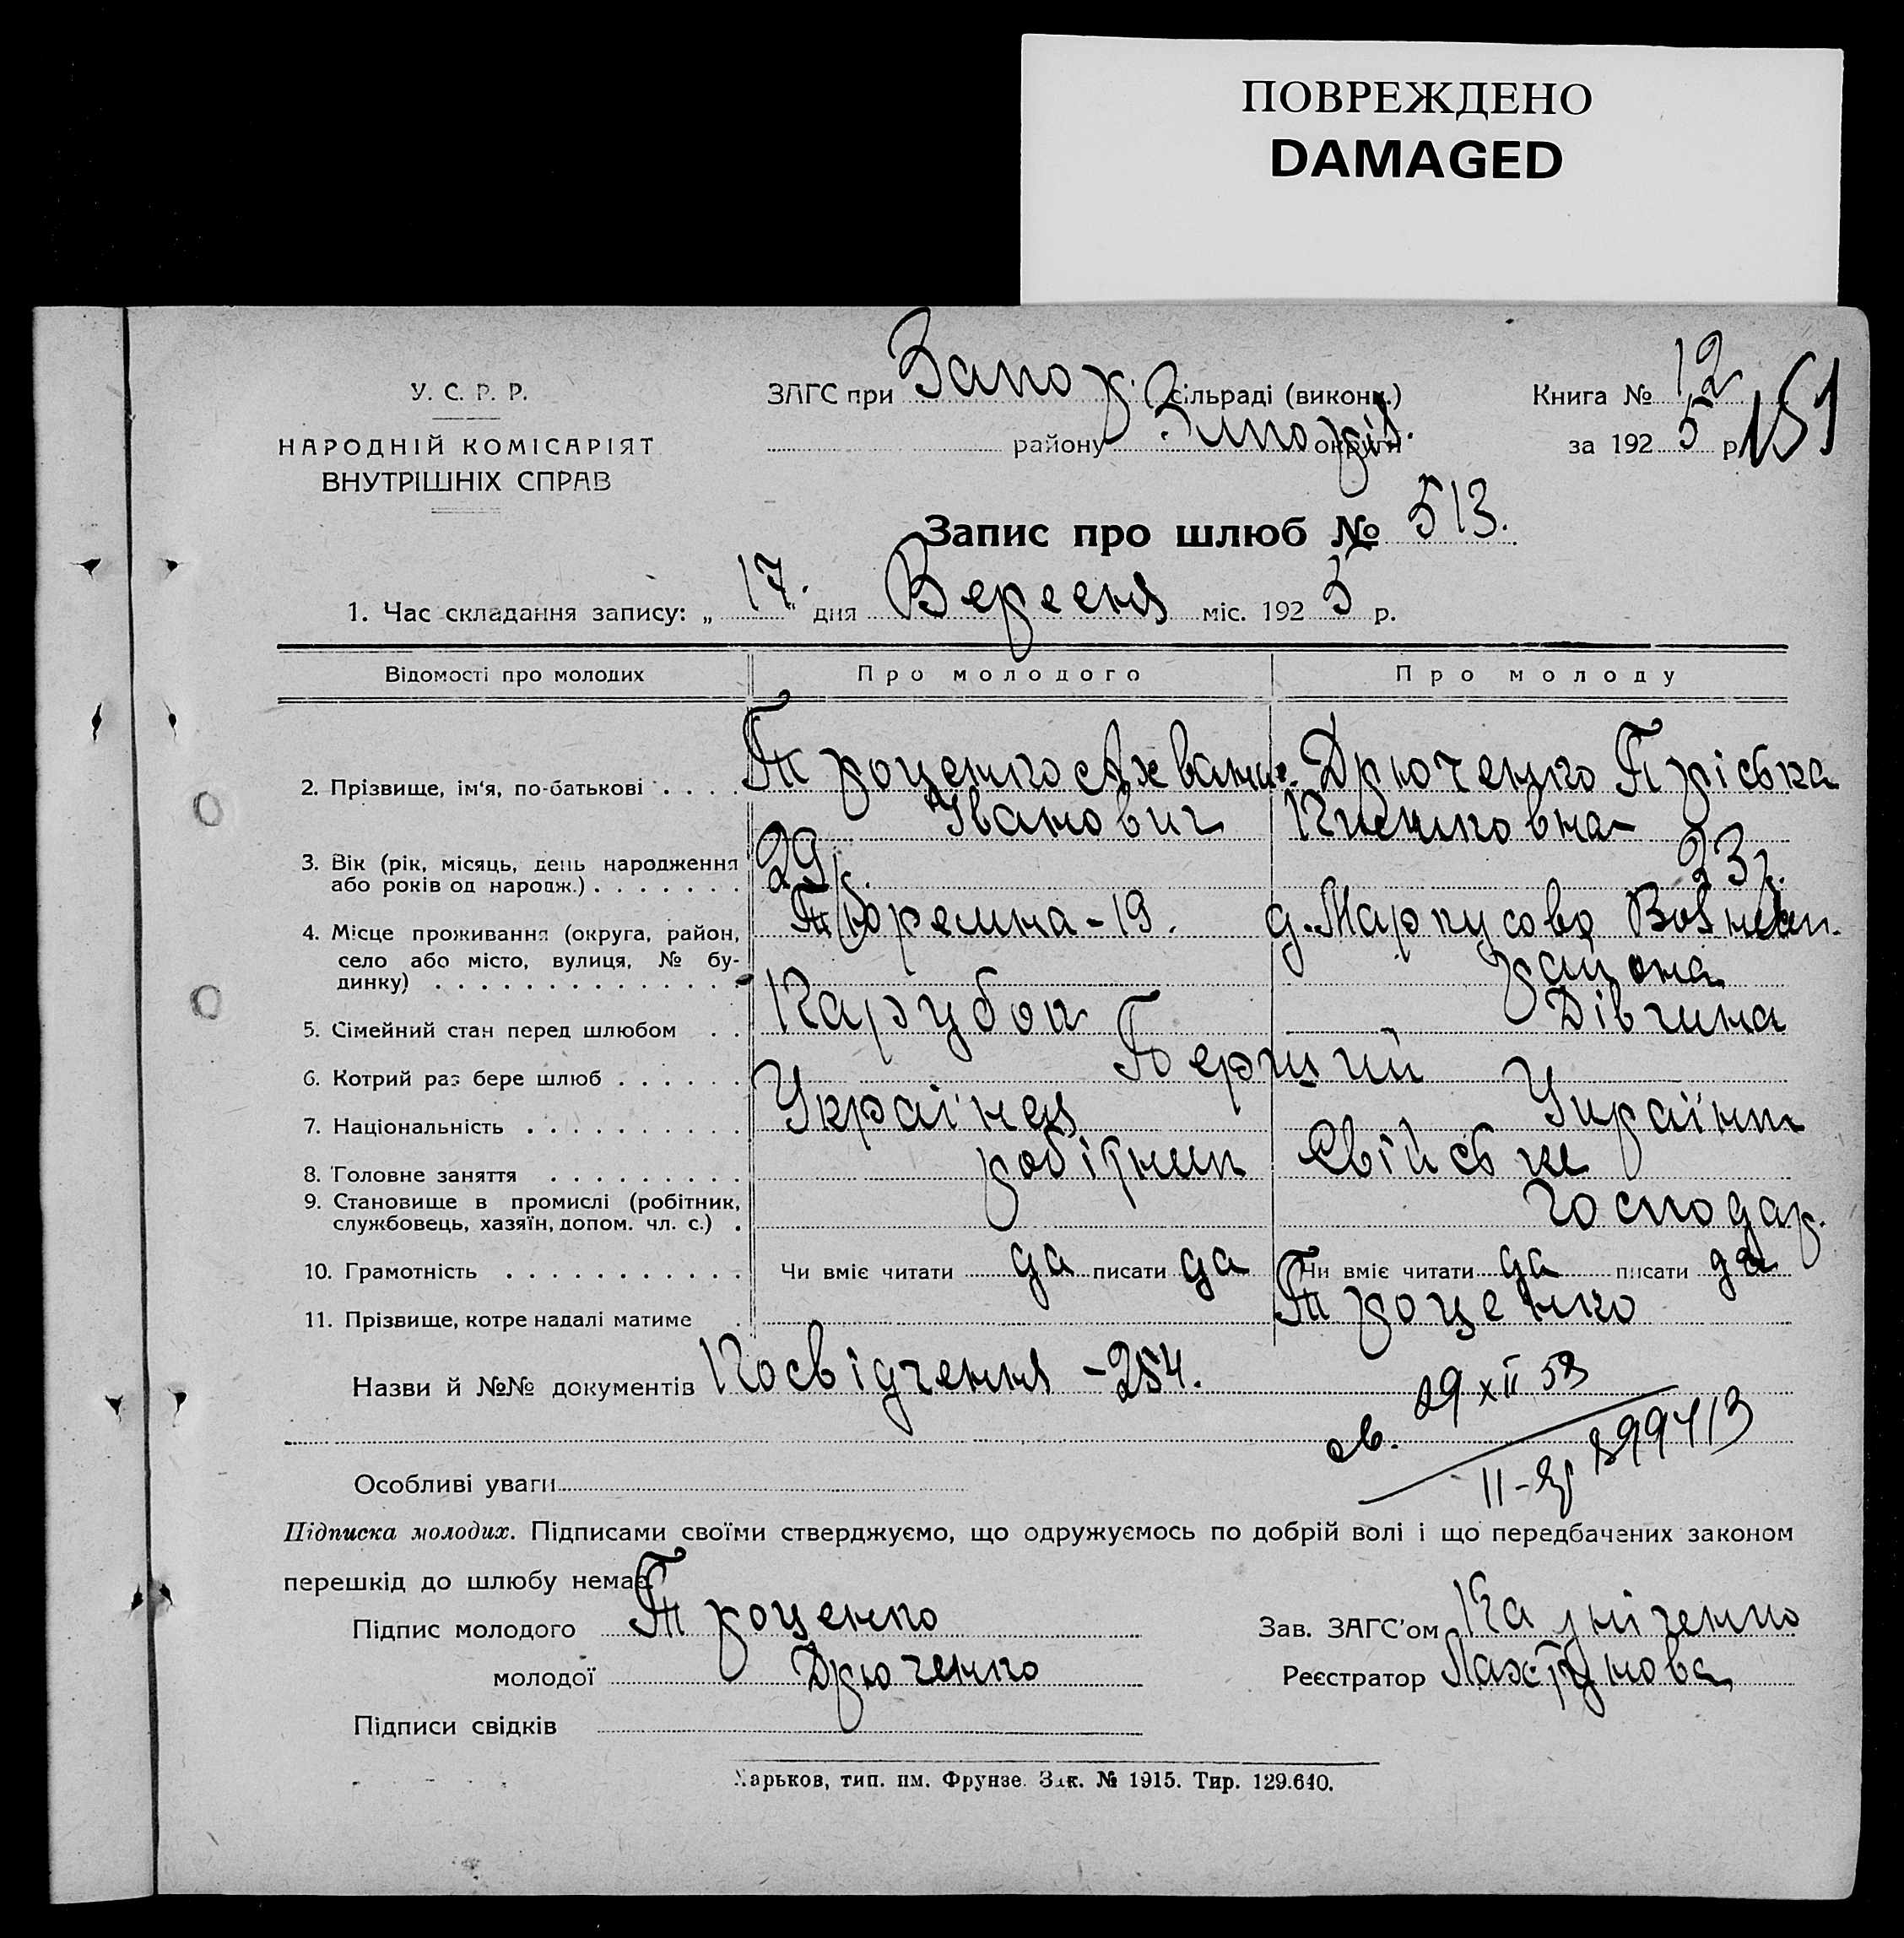 ПОВРЕЖДЕНО
DAMAGED
У. С. Р. Р.
НАРОДНІЙ КОМІСАРІЯТ
ВНУТРІШНІХ СПРАВ
ЗАГС при Запор. сільраді (викону.)
району Запоріз. округи
Книга № 12
за 192 5 р. 151
Запис про шлюб № 513.
1. Час складання запису: „ 17. " дня Вересня міс. 192 5 р.
Відомості про молодих
Про молодого
Про молоду
2. Прізвище, ім'я, по-батькові . . . .
Троценко
Іванович
Дрюченко Пріська
3. Вік (рік, місяць, день народження
або років од народж.) . . . . . . .
29
23 р.
4. Місце проживання (округа, район,
село або місто, вулиця, № бу-
динку) . . . . . . . . . . . . .
Тюремна-19.
д. Маркусово Вознесен.
района
5. Сімейний стан перед шлюбом . .
Парубок
Дівчина
6. Котрий раз бере шлюб . . . . . .
Перший
7. Національність . . . . . . . . . .
Українец
Українк
8. Головне заняття . . . . . . . . .
робітник
9. Становище в промислі (робітник,
службовець, хазяїн, допом. чл. с.) .
господар.
10. Грамотність . . . . . . . . . . .
Чи вміє читати да писати да
Чи вміє читати да писати да
11. Прізвище, котре надалі матиме .
Троценко
Назви й №№ документів Посвідчення - 254.
29 XII 53
св.
899413
Особливі уваги
Підписка молодих. Підписами своїми стверджуємо, що одружуємось по добрій волі і що передбачених законом
перешкід до шлюбу немає.
Підпис молодого Троценко
молодої Дрюченко
Підписи свідків
Зав. ЗАГС'ом Калніченко
Реєстратор
Харьков, тип. им. Фрунзе. Зак. № 1915. Тир. 129.640.